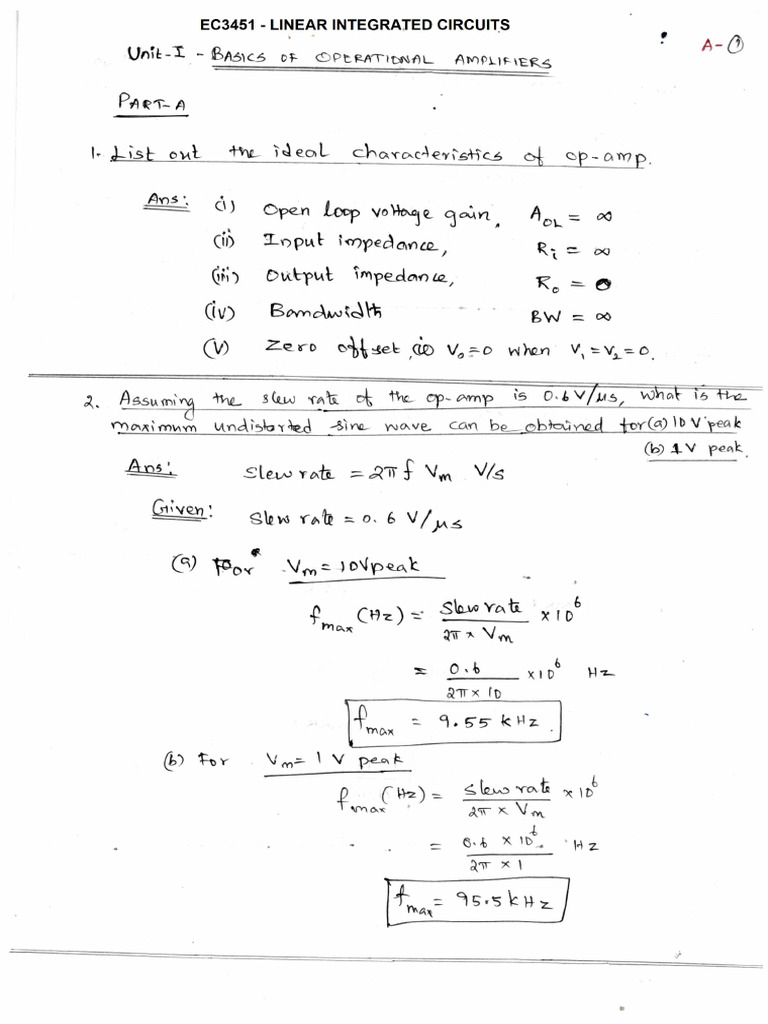 EC3451 - LINEAR INTEGRATED CIRCUITS
A-①
Unit-I - BASICS OF OPERATIONAL AMPLIFIERS
PART-A
1. List out the ideal characteristics of op-amp.
Ans: (i) Open loop voltage gain, A_OL = ∞
(ii) Input impedance, R_i = ∞
(iii) Output impedance, R_o = 0
(iv) Bandwidth BW = ∞
(v) Zero offset, (ie) V_o = 0 when V_1 = V_2 = 0.
2. Assuming the slew rate of the op-amp is 0.6 V/μs, what is the
maximum undistorted sine wave can be obtained for (a) 10 V peak
(b) 1 V peak.
Ans: Slew rate = 2πf V_m V/s
Given: Slew rate = 0.6 V/μs
(a) For V_m = 10V peak
f_max (Hz) = Slew rate / 2π × V_m × 10^6
= 0.6 / 2π × 10 × 10^6 Hz
f_max = 9.55 kHz.
(b) For V_m = 1 V peak
f_max (Hz) = Slew rate / 2π × V_m × 10^6
= 0.6 × 10^6 / 2π × 1 Hz
f_max = 95.5 kHz